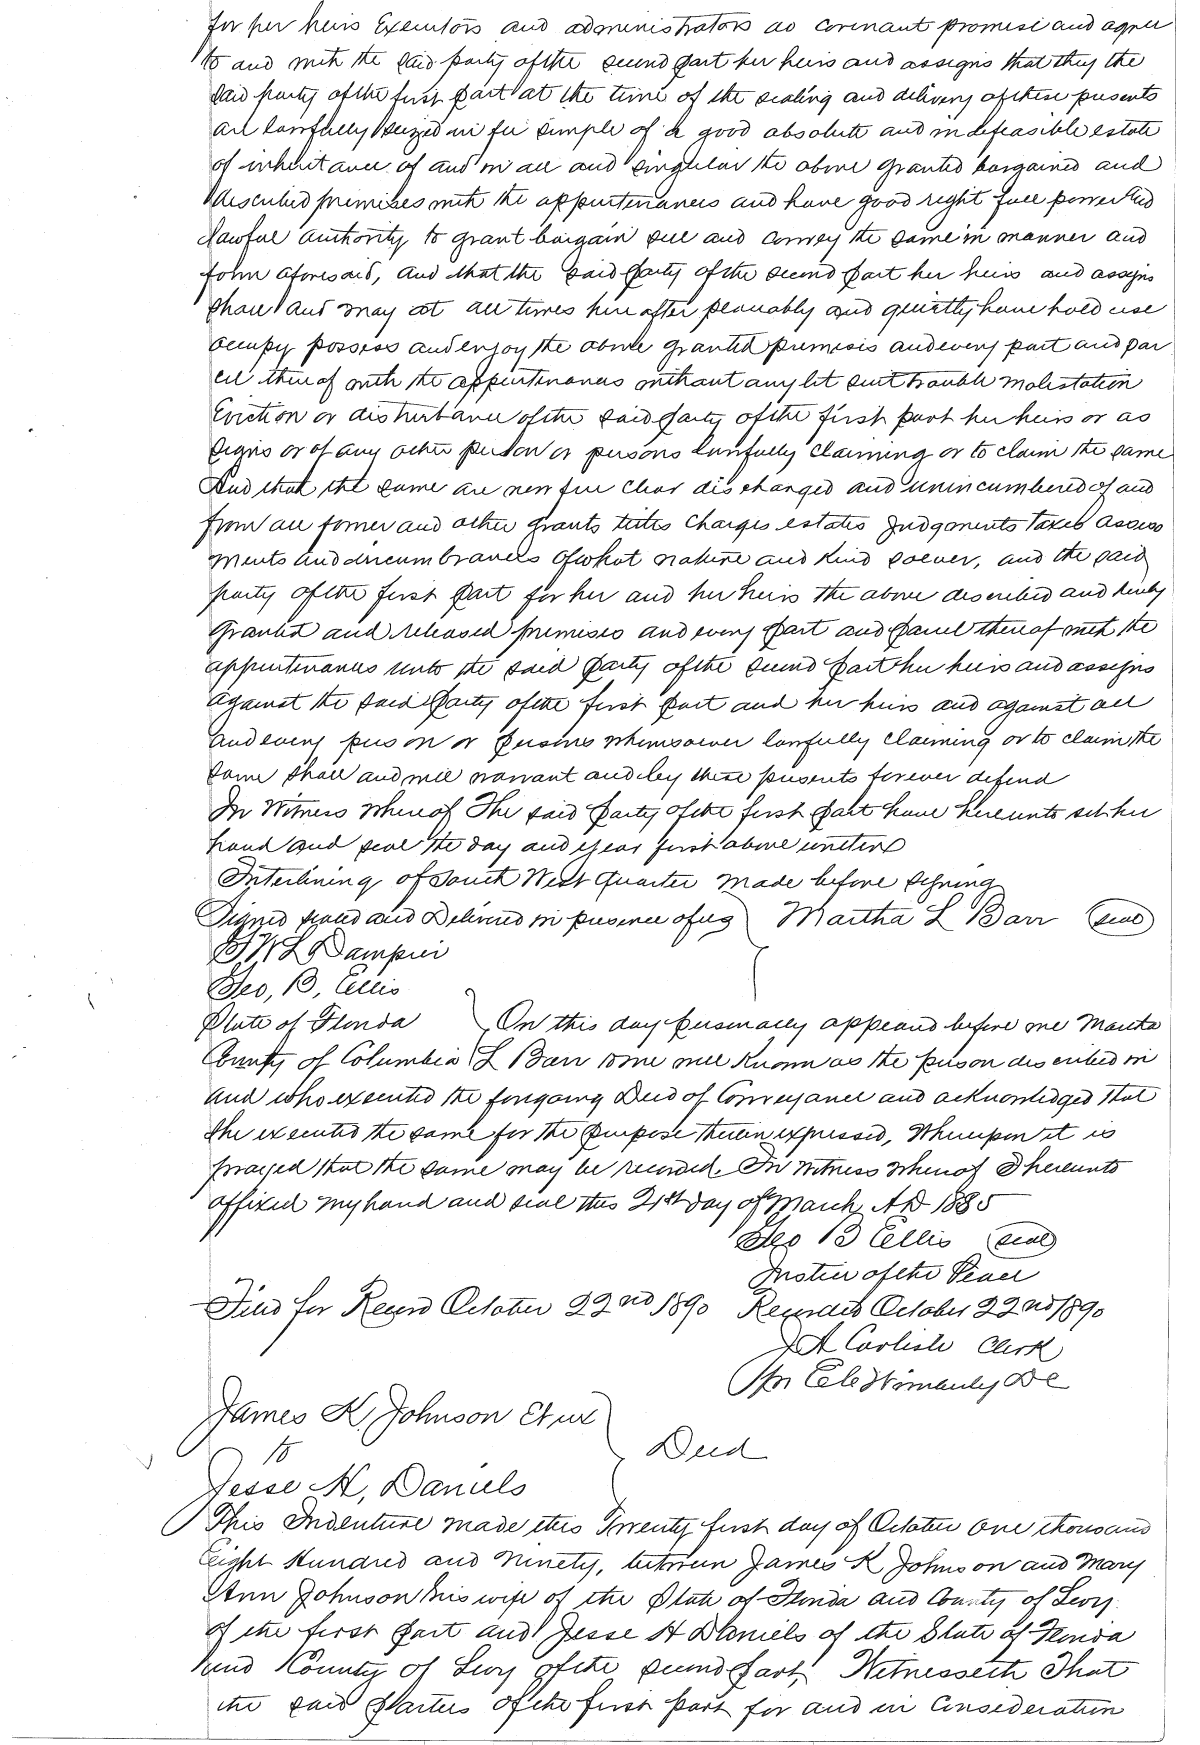 for her heirs Executors and administrators do covenant promise and agree
to and with the said party of the second part her heirs and assigns that they the
said party of the first part at the time of the sealing and delivery of these presents
are lawfully seized in fee simple of a good absolute and indefeasible estate
of inheritance of and in all and singular the above granted bargained and
described premises with the appurtenances and have good right full power and
lawful authority to grant bargain sell and convey the same in manner and
form aforesaid, and that the said party of the second part her heirs and assigns
shall and may at all times here after peaceably and quietly have hold use
occupy possess and enjoy the above granted premises and every part and par
cel thereof with the appurtenances without any let suit trouble molestation
Eviction or disturbance of the said party of the first part her heirs or as
signs or of any other person or persons lawfully claiming or to claim the same
And that the same are now free clear discharged and unincumbered of and
from all former and other grants titles charges estates judgments taxes assess
ments and incumbrances of what nature and kind soever, and the said
party of the first part for her and her heirs the above described and hereby
granted and released premises and every part and parcel thereof with the
appurtenances unto the said party of the second part her heirs and assigns
against the said party of the first part and her heirs and against all
and every person or persons whomsoever lawfully claiming or to claim the
same shall and will warrant and by these presents forever defend
In Witness Whereof The said party of the first part have hereunto set her
hand and seal the day and year first above written
Interlining of South West Quarter made before signing
Signed sealed and Delivered in presence of us Martha L Barr seal
Dampier
Geo, B, Ellis
State of Florida On this day personally appeared before me Martha
County of Columbia L Barr to me well known as the person described in
and who executed the foregoing Deed of Conveyance and acknowledged that
she executed the same for the purpose therein expressed, Whereupon it is
prayed that the same may be recorded. In Witness Whereof I hereunto
affixed my hand and seal this 21st day of March AD 1885
Geo B Ellis seal
Justice of the Peace
Filed for Record October 22nd 1890 Recorded October 22nd 1890
J A Carlisle Clerk
DC
James K, Johnson Et ux
to Deed
Jesse H, Daniels
This Indenture made this Twenty first day of October one thousand
Eight Hundred and Ninety, between James K Johnson and Mary
Ann Johnson his wife of the State of Florida and County of Levy
of the first part and Jesse H Daniels of the State of Florida
and County of Levy of the second part, Witnesseth That
the said parties of the first part for and in Consideration